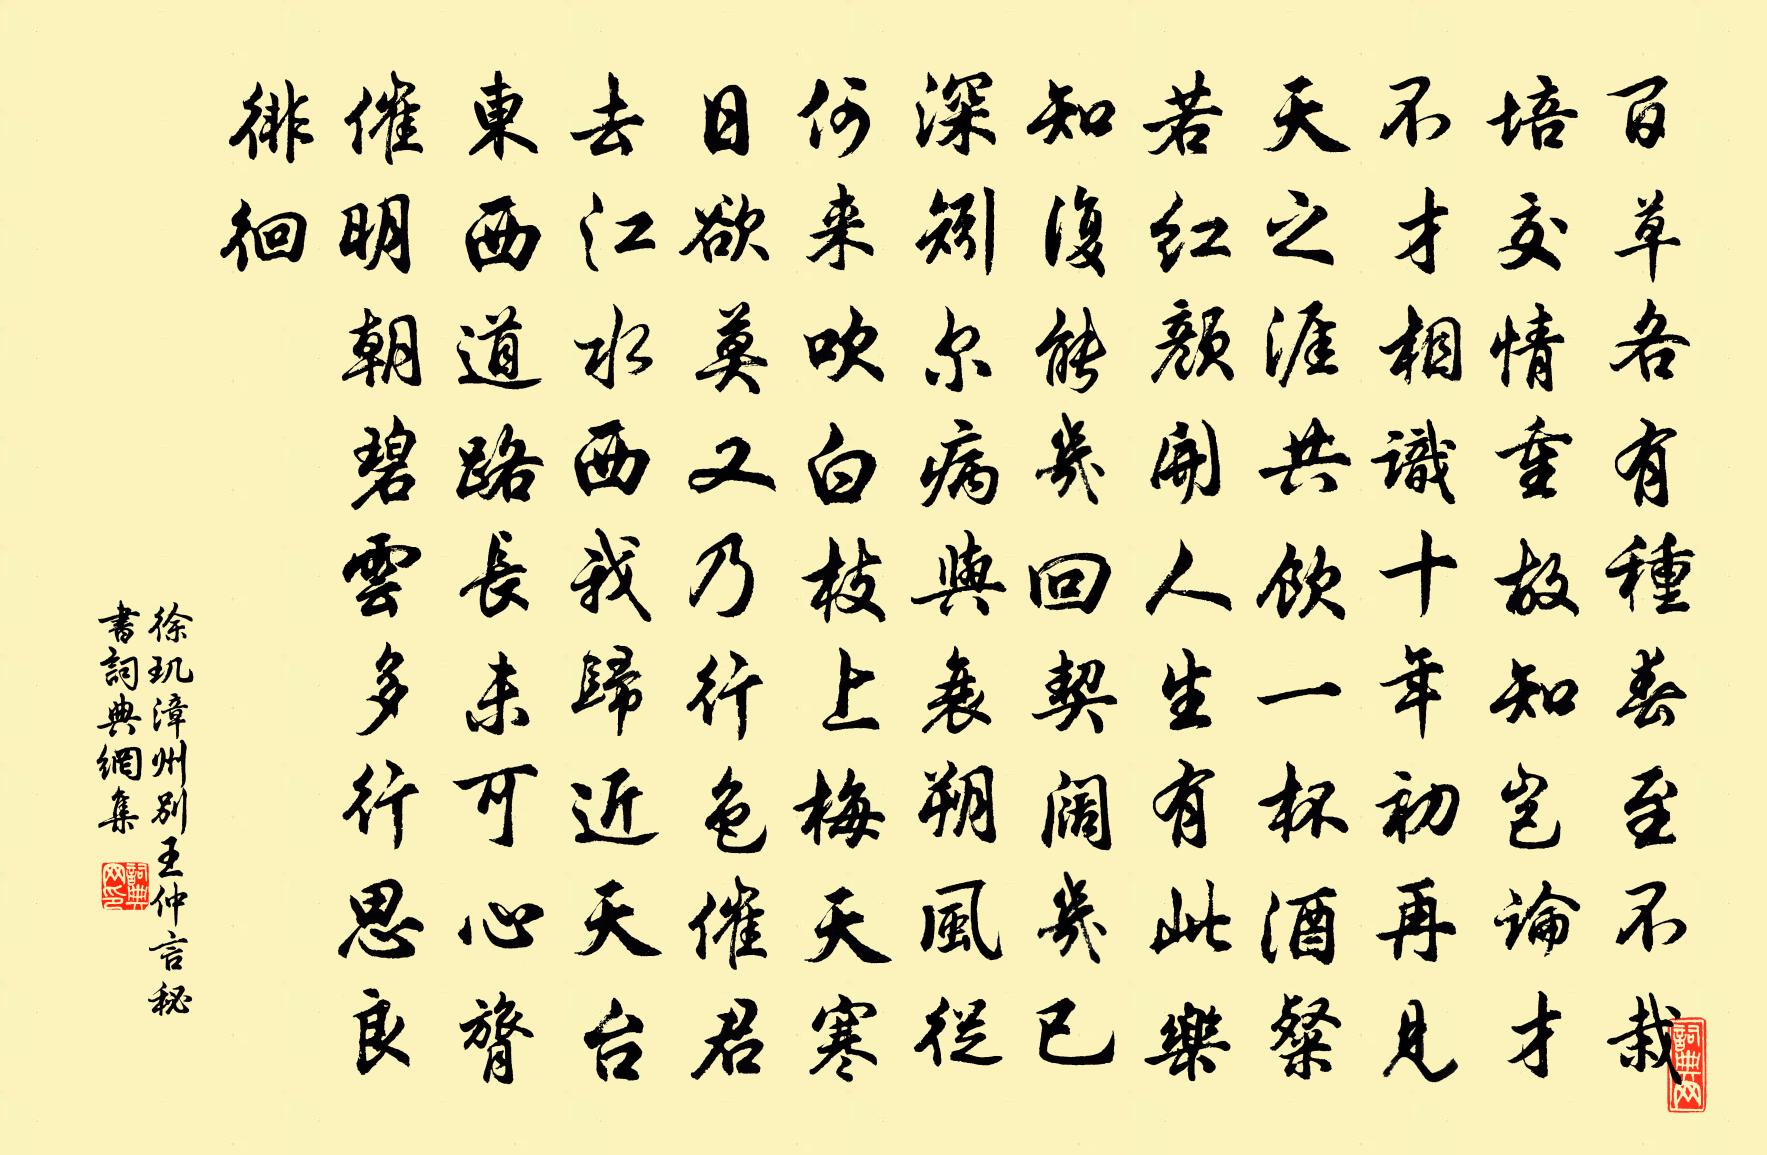 百草各有種春至不栽
培交情重故知豈論才
不才相識十年初再見
天之涯共飲一杯酒粲
若紅顏開人生有此樂
知復能幾回契闊幾已
深矧尔病與衰朔風從
何来吹白枝上梅天寒
日欲莫又乃行色催君
去江水西我歸近天台
東西道路長未可心膂
催明朝碧雲多行思良
徘徊
徐玑漳州别王仲言秘
書詞典網集
詞典网印
詞典网